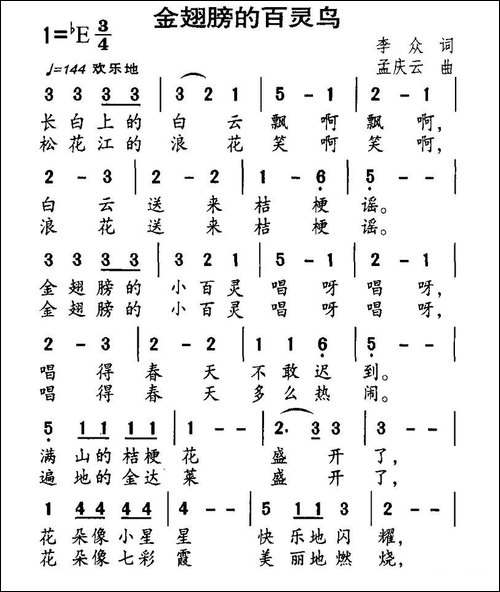 金翅膀的百灵鸟
1=♭E 3/4
李 众 词
♩=144 欢乐地
孟庆云 曲
3 3 3 3 | 3 2 1 | 5 - 1 | 2 - 1 |
长白上的 白 云 飘 啊 飘 啊,
松花江的 浪 花 笑 啊 笑 啊,
2 - 3 | 2 - 2 | 1 - 6 | 5 - - |
白 云 送 来 桔 梗 谣。
浪 花 送 来 桔 梗 谣。
3 3 3 3 | 3 2 1 | 5 - 1 | 2 - 1 |
金翅膀的 小百灵 唱 呀 唱 呀,
金翅膀的 小百灵 唱 呀 唱 呀,
2 - 3 | 2 - 2 | 1 1 6 | 5 - - |
唱 得 春 天 不敢迟 到。
唱 得 春 天 多么热 闹。
5 1 1 1 1 | 1 - - | 2. 3 3 | 3 - - |
满 山的桔梗 花 盛 开 了,
遍 地的金达 莱 盛 开 了,
1 4 4 4 4 | 4 - - | 5 1 1 3 | 2 - - |
花 朵像小星 星 快 乐地闪 耀,
花 朵像七彩 霞 美 丽地燃 烧,